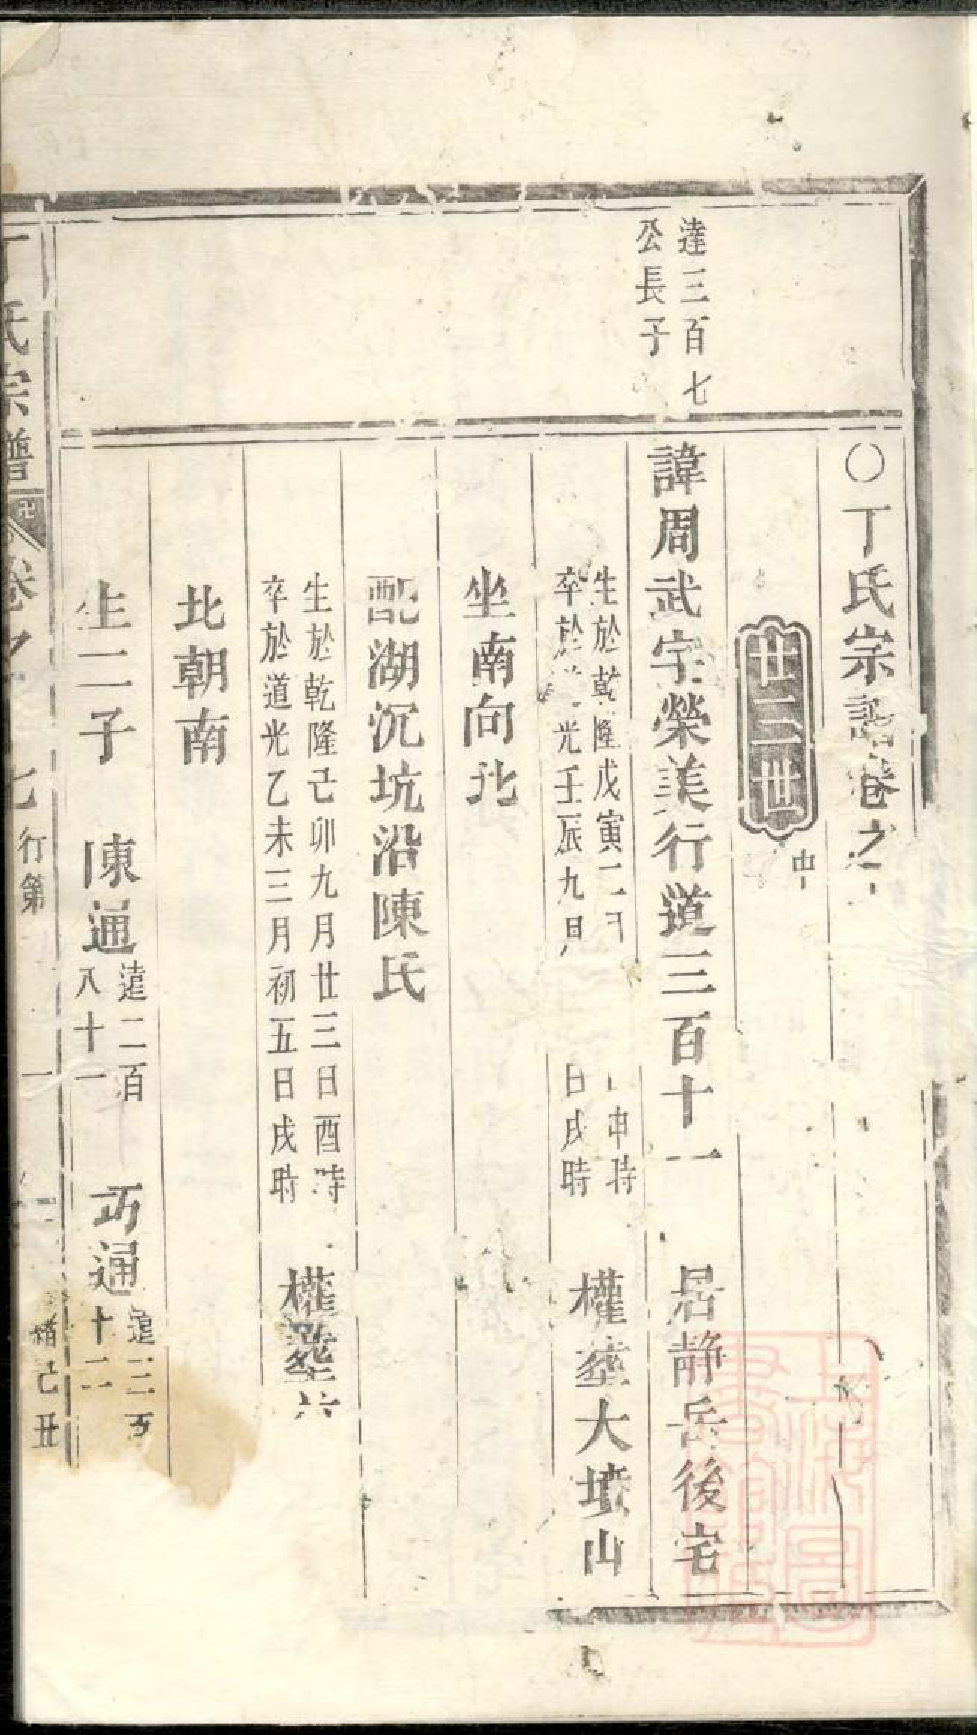 ○丁氏宗譜卷之
廿二世
達三百七
公長子
諱周武字榮美行道三百十一 居靜岳後宅
生於乾隆戊寅二 申時
卒於 光壬辰九月 日戌時 權塟大墳山
坐南向北
配湖沉坑沿陳氏
生於乾隆己卯九月廿三日酉時
卒於道光乙未三月初五日戌時 權塟
北朝南
生二子 陳通 達二百
八十一
通 三百
十二
丁氏宗譜 卷之 七 行第
己丑